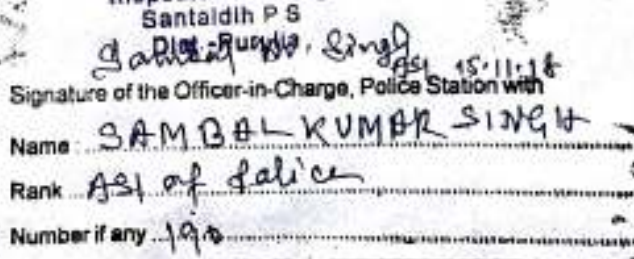 Santaldih P S
Dist.-Purulia, Singh
ASI 15.11.18
Signature of the Officer-in-Charge, Police Station with
Name : SAMBAL KUMAR SINGH
Rank ASI of Police
Number if any